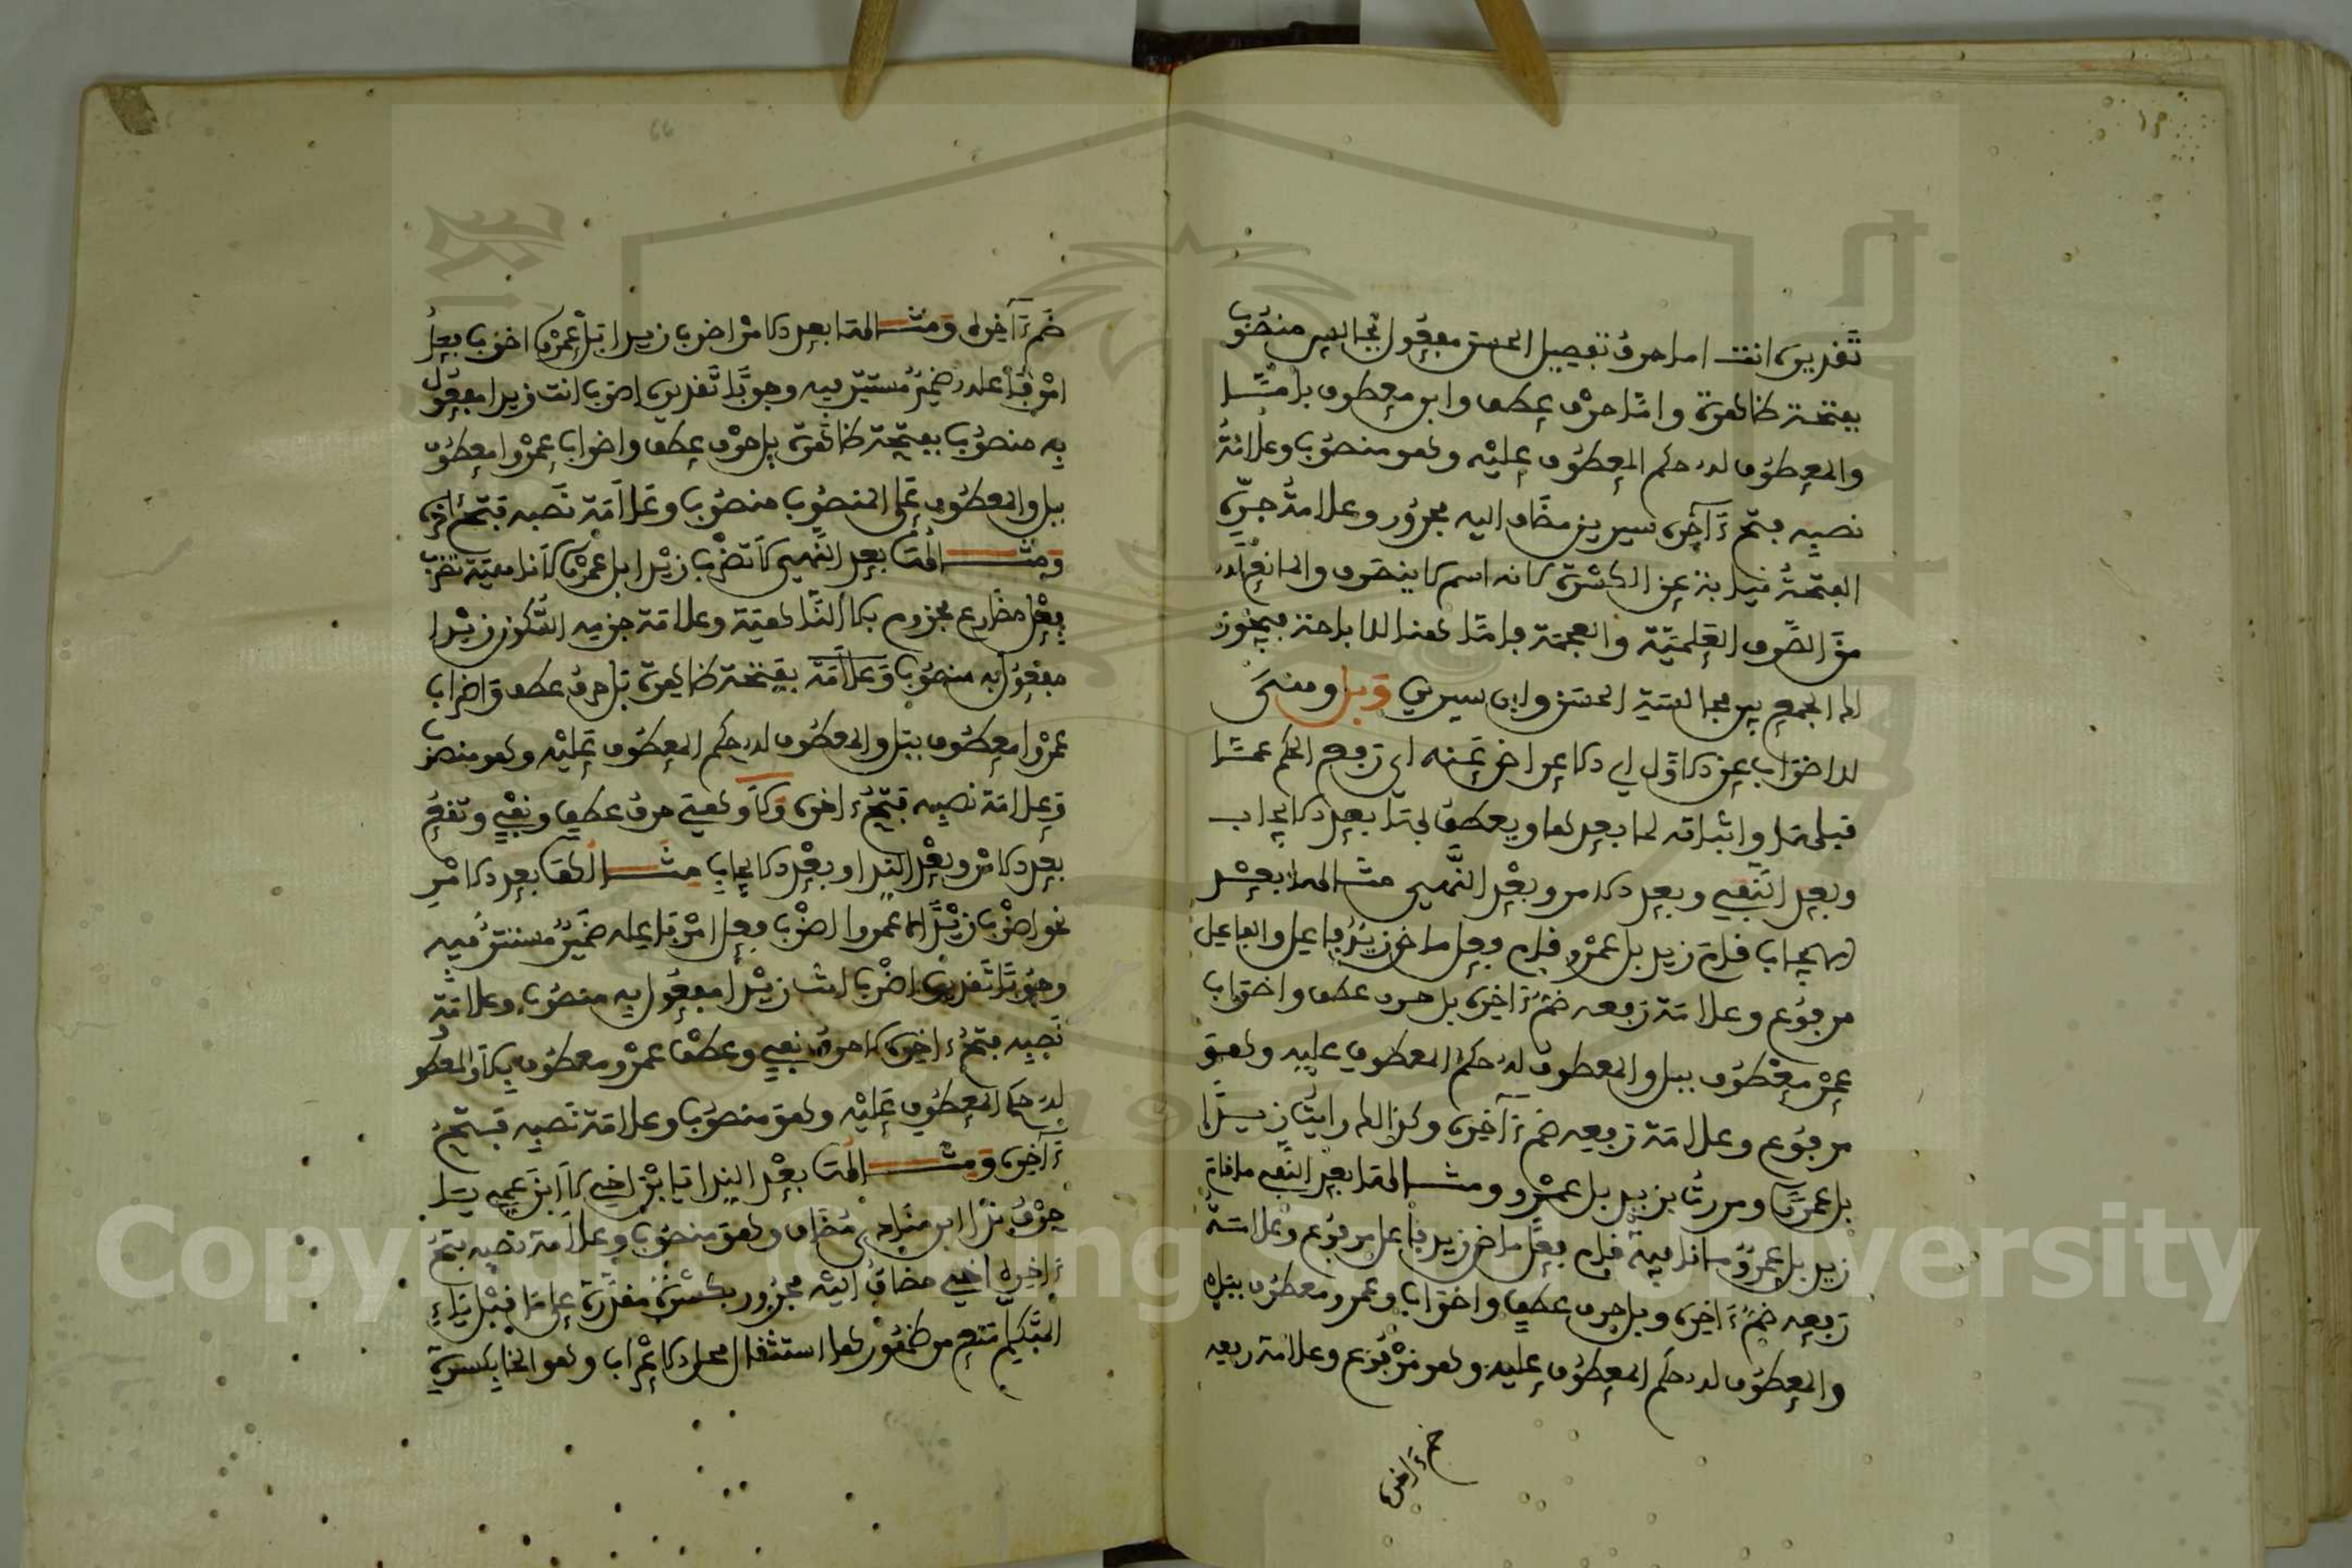 تقديره انت اما حرف تفصيل الحسن مفعول بجالس منصوب
بفتحة ظاهرة واما حرف عطف وابن معطوف باما
والمعطوف له حكم المعطوف عليه وهو منصوب وعلامة
نصبه فتح ءاخره سيرين مضاف اليه مجرور وعلامة جره
الفتحة نيابة عن الكسرة لانه اسم لا ينصرف والمانع له
من الصرف العلمية والعجمة فاما هنا للاباحة فيجوز
له الجمع بين مجالسة الحسن وابن سيرين وبل ومعنى
الاضراب عن الاول اي الاعراض عنه اي رفع الحكم عما
قبلها واثباته لما بعدها ويعطف بها بعد الايجاب
وبعد النفي وبعد الامر وبعد النهي مثالها بعد
الايجاب قام زيد بل عمرو قام فعل ماض زيد فاعل والفاعل
مرفوع وعلامة رفعه ضم ءاخره بل حرف عطف واضراب
عمر معطوف ببل والمعطوف له حكم المعطوف عليه وهو
مرفوع وعلامة رفعه ضم ءاخره وكذالك رايت زيدا
بل عمرا ومررت بزيد بل عمرو ومثالها بعد النفي ما قام
زيد بل عمرو ما نافية قام فعل ماض زيد فاعل مرفوع وعلامة
رفعه ضم ءاخره وبل حرف عطف واضراب وعمرو معطوف ببل
والمعطوف له حكم المعطوف عليه وهو مرفوع وعلامة رفعه
ضم ءاخره
ضم ءاخره ومثالها بعد الامر اضرب زيدا بل عمرا اضرب فعل
امر فاعله ضمير مستتر فيه وجوبا تقديره اضرب انت زيدا مفعول
به منصوب بفتحة ظاهرة بل حرف عطف واضراب عمروا معطوف
ببل والمعطوف على المنصوب منصوب وعلامة نصبه فتح ءاخره
ومثالها بعد النهي لا تضرب زيدا بل عمرا لا ناهية تضرب
فعل مضارع مجزوم بلا الناهية وعلامة جزمه السكون زيدا
مفعول به منصوب وعلامة بفتحة ظاهرة بل حرف عطف واضراب
عمروا معطوف ببل والمعطوف له حكم المعطوف عليه وهو منصوب
وعلامة نصبه فتح ءاخره ولا وهي حرف عطف ونفي وتقع
بعد الامر وبعد الندا وبعد الايجاب مثالها بعد الامر
نحو اضرب زيدا لا عمروا اضرب فعل امر فاعله ضمير مستتر فيه
وجوبا تقديره اضرب انت زيدا مفعول به منصوب وعلامة
نصبه فتح ءاخره لا حرف نفي وعطف عمرو معطوف بلا والمعطو
له حكم المعطوف عليه وهو منصوب وعلامة نصبه فتح
ءاخره ومثالها بعد الندا يا بن اخي لا ابن عمي يا
حرف ندا ابن منادى مضاف وهو منصوب وعلامة نصبه فتح
ءاخره اخي مضاف اليه مجرور بكسرة مقدرة على ما قبل ياء
المتكلم منع من ظهورها استثقال محل الاعراب وهو الخا بكسرة